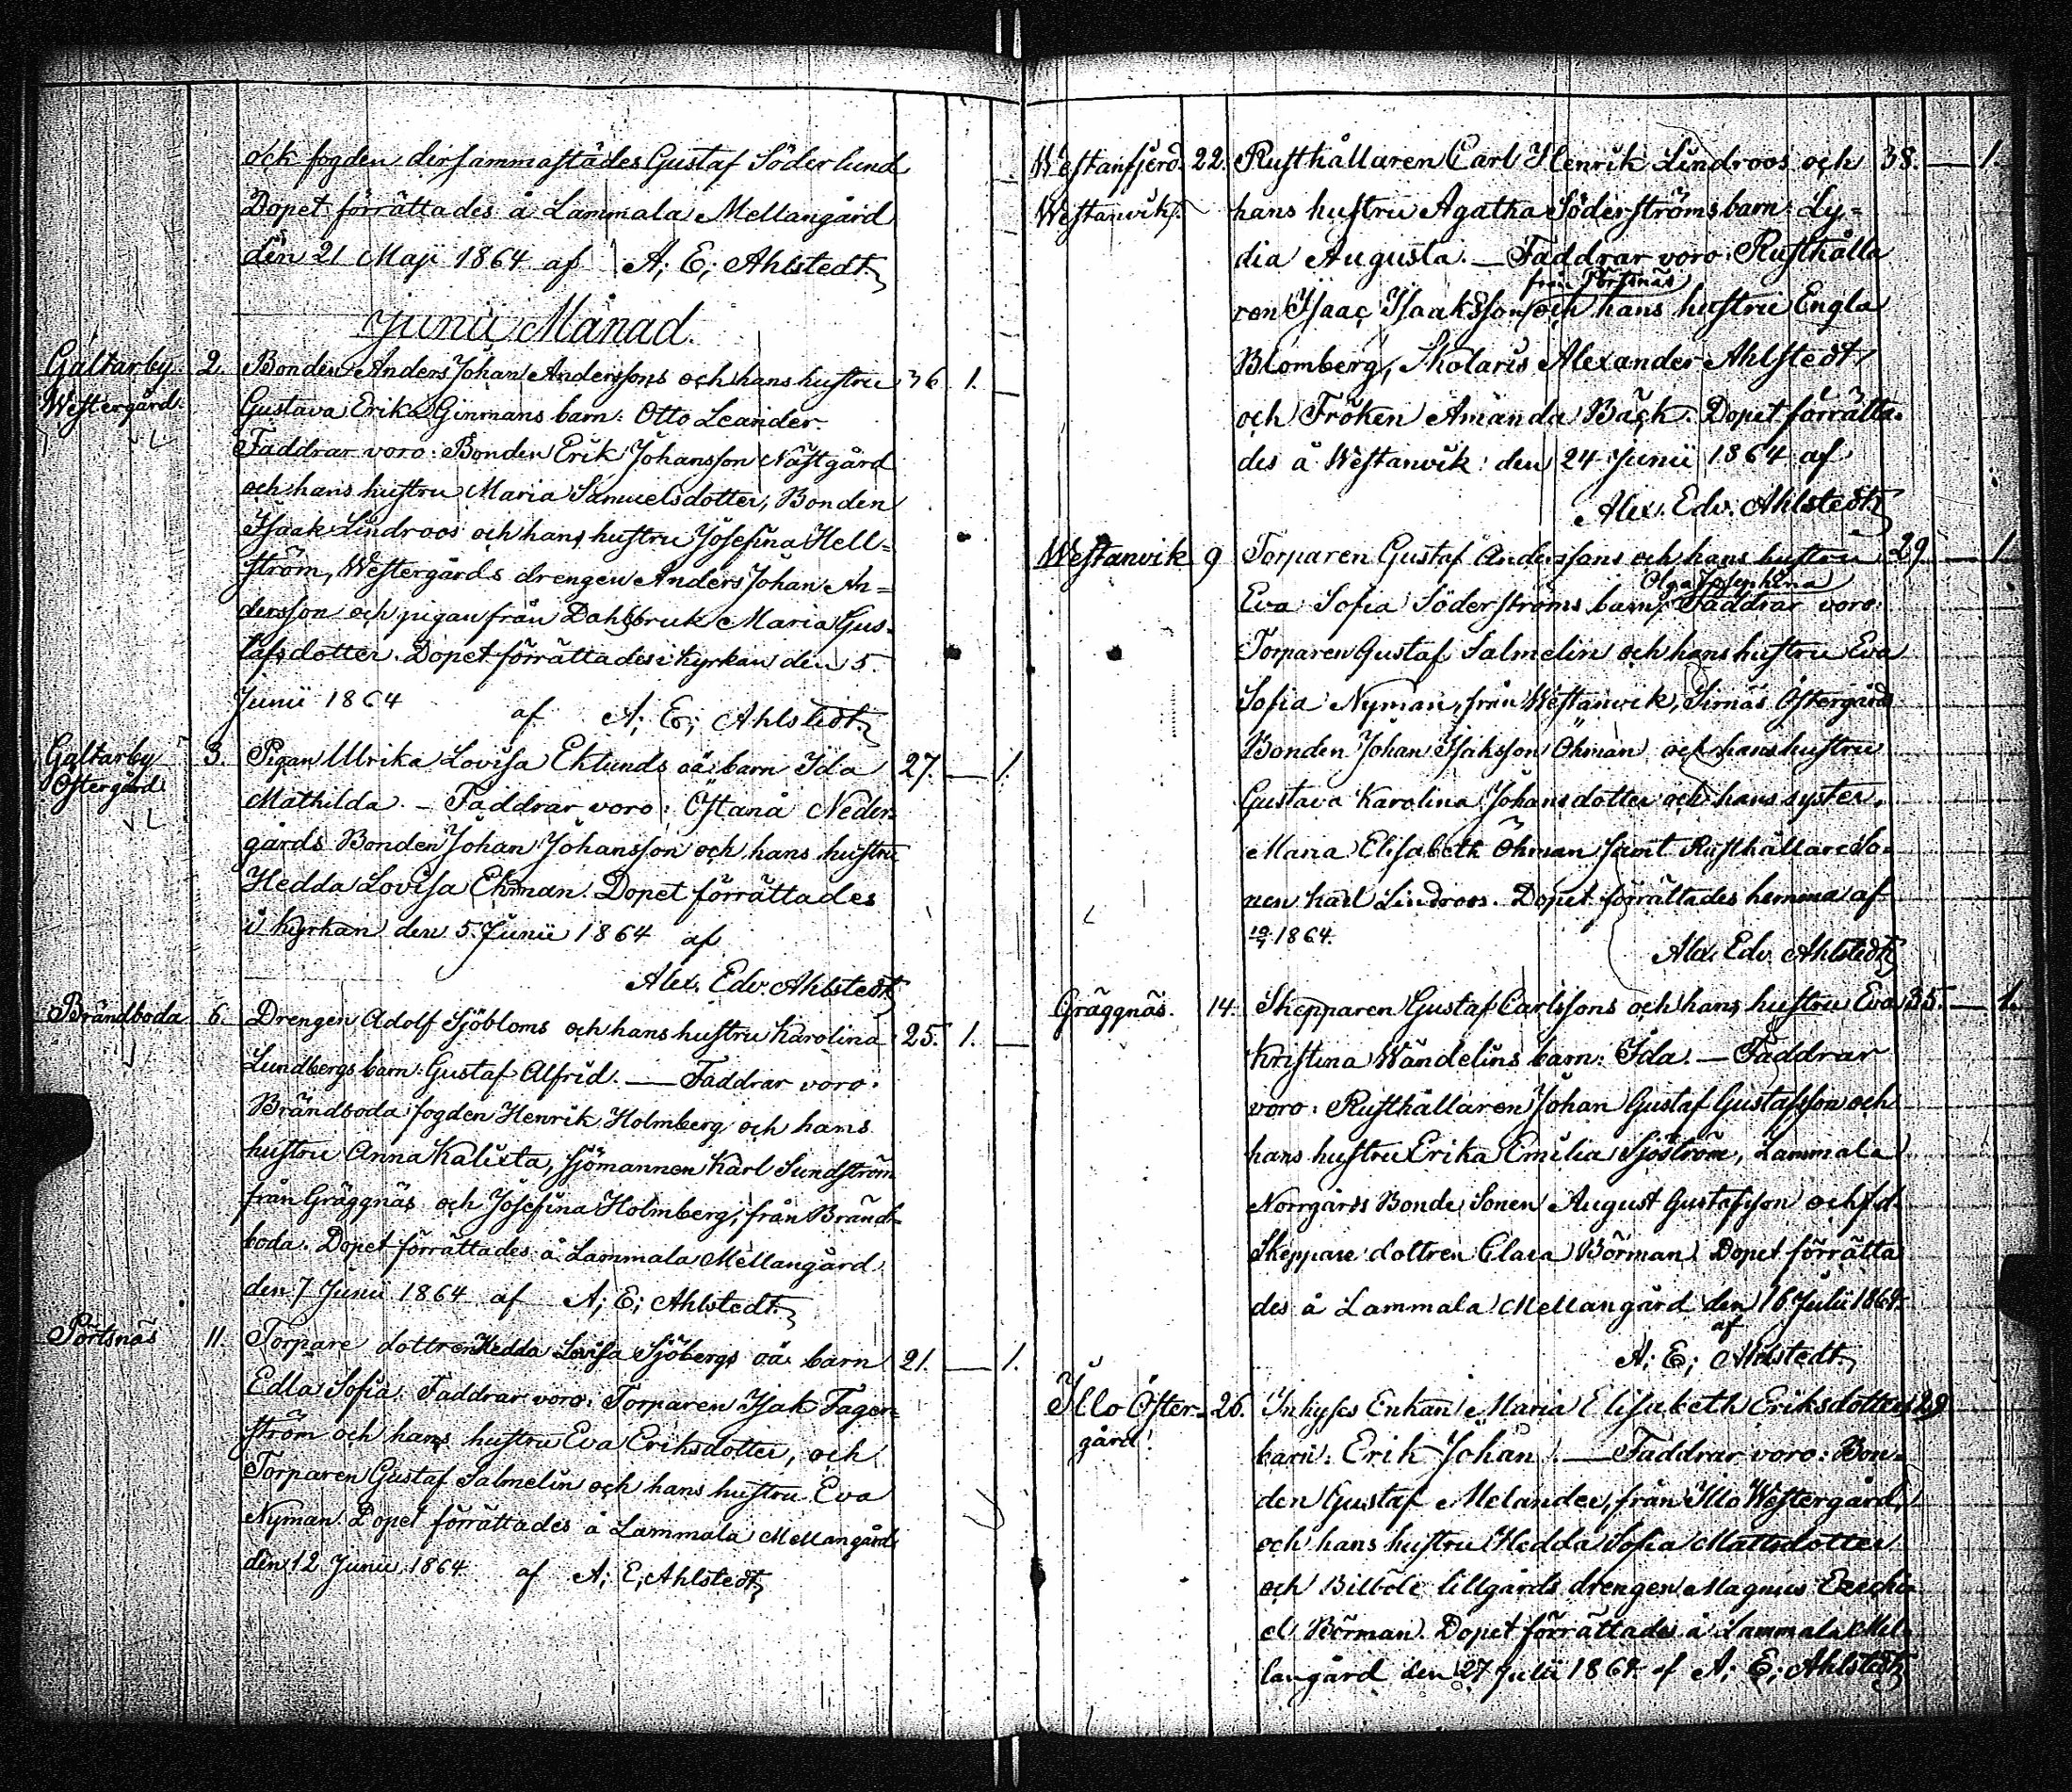 och fogden dersammastädes Gustaf Söderlund
Dopet förrättades å Lammala Mellangård
den 21 Maji 1864 af A; E; Ahlstedt.
Junii Månad.
Galtarby 2. Bonden Anders Johan Anderssons och hans hustru 36 1. —
Westergård. Gustava Erika Ginmans barn: Otto Leander.
Faddrar voro: Bonden Erik Johansson Nästgård
och hans hustru Maria Samuelsdotter, Bonden
Isaak Lindroos och hans hustru Josefina Hell=
ström, Westergårds drengen Anders Johan An=
dersson och pigan från Dahlsbruk Maria Gus=
tafsdotter. Dopet förrättades i Kyrkan den 5.
Junii 1864 af A; E; Ahlstedt.
Galtarby 3. Pigan Ulrika Lovisa Eklunds oä: barn Ida 27. — 1.
Östergård Mathilda. — Faddrar voro: Östanå Neder=
gårds Bonden Johan Johansson och hans hustru
Hedda Lovisa Ehrman. Dopet förrättades
i Kyrkan den 5. Junii 1864 af
Alex. Edv. Ahlstedt
Brändboda 6. Drengen Adolf Sjöbloms och hans hustru Karolina 25. 1. —
Lundbergs barn: Gustaf Alfrid. — Faddrar voro:
Brändboda fogden Henrik Holmberg och hans
hustru Anna Kalixta, sjömannen Karl Sundström
från Gräggnäs och Josefina Holmberg, från Bränd=
boda. Dopet förrättades å Lammala Mellangård
den 7 Junii 1864 af A; E; Ahlstedt.
Pörtsnäs 11. Torpare dottren Hedda Lovisa Sjöbergs oä: barn 21. — 1.
Edla Sofia. Faddrar voro: Torparen Isak Fager=
ström och hans hustru Eva Eriksdotter, och
Torparen Gustaf Salmelin och hans hustru Eva
Nyman. Dopet förrättades å Lammala Mellangård
den 12 Junii 1864 af A; E; Ahlstedt
Westanfjerd. 22. Rusthållaren Carl Henrik Lindroos och 38. — 1.
Westanvik. hans hustru Agatha Söderströms barn: Ly=
dia Augusta. — Faddrar voro: Rusthålla
från Pörtsnäs
ren Isaac Isaaksson och hans hustru Engla
Blomberg, Skolaris Alexander Ahlstedt
och Fröken Amanda Bäck. Dopet förrätta=
des å Westanvik den 24 Junii 1864 af
Alex. Edv. Ahlstedt
Westanvik 9 Torparen Gustaf Anderssons och hans hustru 29. — 1
Olga Josephina
Eva Sofia Söderströms barn: Faddrar voro:
Torparen Gustaf Salmelin och hans hustru Eva
Sofia Nyman, från Westanvik, Sirnäs Östergård
Bonden Johan Isaksson Öhman och hans hustru
Gustava Karolina Johansdotter och hans syster,
Maria Elisabeth Öhman samt Rusthållare So=
nen Karl Lindroos. Dopet förrättades hemma af
1864.
Alex. Edv. Ahlstedt
Gräggnäs. 14. Skepparen Gustaf Carlssons och hans hustru Eva 35. — 1.
Kristina Wandelins barn: Ida. — Faddrar
voro: Rusthållaren Johan Gustaf Gustafsson och
hans hustru Erika Emilia Sjöström, Lammala
Norrgårds Bonde Sonen August Gustafsson och fd.
Skeppare dottren Clara Börman. Dopet förrätta
des å Lammala Mellangård den 16 Julii 1864.
af
A; E; Ahlstedt.
Illo Öster= 26. Inhyses Enkan Maria Elisabeth Eriksdotters 29
gård. barn: Erik Johan. — Faddrar voro: Bon=
den Gustaf Melander, från Illo Westergård,
och hans hustru Hedda Sofia Mattsdotter
och Billböle lillgårds drengen Magnus Ezechi=
el Börman. Dopet förrättades å Lammala Mel=
langård den 27 Julii 1864 af A; E; Ahlstedt